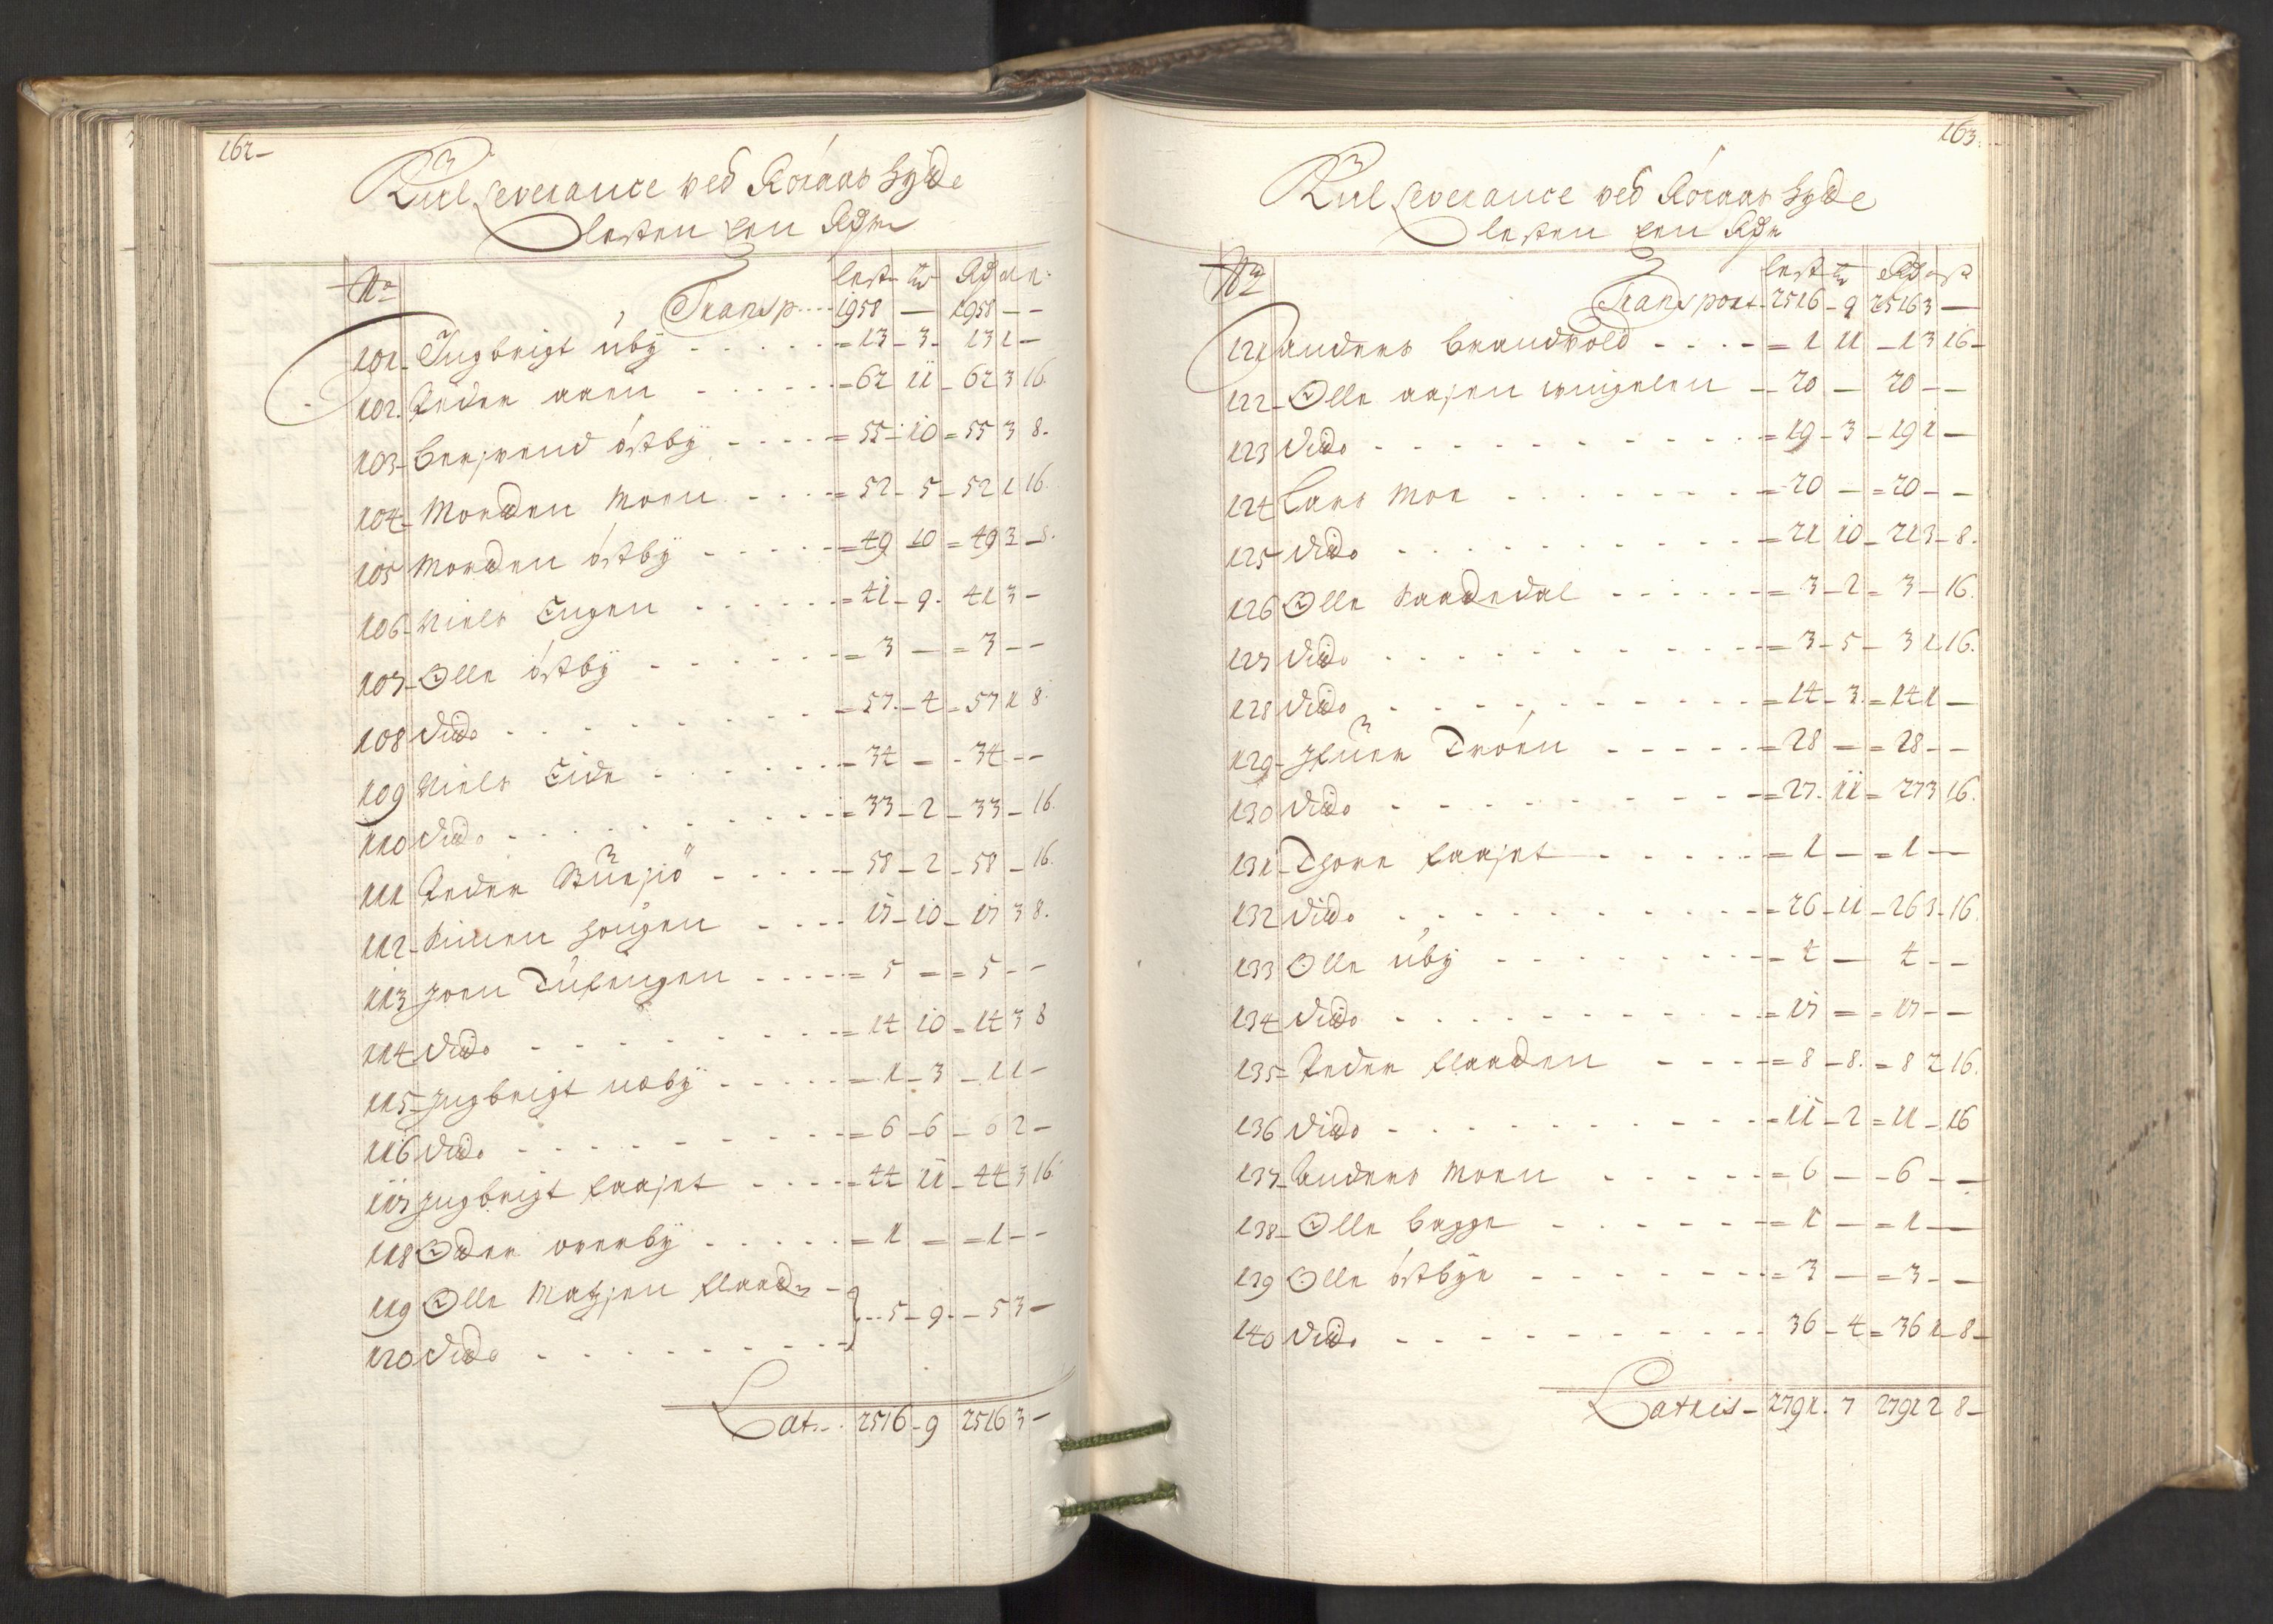 162-
Kul Leverance ved Róraas hytte
lesten En Rdr
No lest td Rd ort
Transp .... 1958 — 1958 - -
101- Ingbrigt úby - - - - = 13 - 3 - 13 1 -
102. Peder aaen - - - - = 62 11 - 62 3 16.
103- bersvend östbÿ - - - - = 55 - 10 = 55 3 8.
104- Morten Moen - - - - = 52 - 5 - 52 1 16.
105 Morten östbÿ - - - - = 49 10 = 49 3 - 8.
106- Niels Engen - - - - = 41 - 9 - 41 3 -
107- Olle östbÿ - - - - = 3 — = 3 - -
108 dito - - - - = 57 - 4 = 57 1 8.
109 Niels Eide - - - - = 34 — - 34 - -
110 dito - - - - = 33 - 2 - 33 - 16.
111 Peder Bursiö - - - - 58 - 2 - 58 - 16.
112- Simen hougen - - - - 17 - 10 - 17 3 8.
113 Joen Tufengen - - - - = 5 — = 5 - -
114 dito - - - - = 14 10 = 14 3 8
115- Ingbrigt nøbÿ - - - - = 1 - 3 - 1 1 -
116 dito - - - - = 6 - 6 - 6 2 -
117 Ingbrigt faaset - - - - = 44 11 - 44 3 16.
118 Osten overbÿ - - - - = 1 — = 1 - -
119 Olle Matzsen flaaten - } ... 5 - 9 - 5 3 -
120 dito - - - -
Lat... 2516 - 9 2516 3 -
163.
Kul Leverance ved Róraas hytte
lesten En Rdr
No lest td Rd ort s
Transport - 2516 - 9 2516 3 —
121 anders brandvold - - - - = 1 11 - 1 3 16 -
122- Olle aasen vingelen - 20 — 20 - -
123 dito - - - - = 19 - 3 - 19 1 —
124 Lars Moe - - - - = 20 — = 20 - -
125 dito - - - - = 21 10 - 21 3 - 8.
126 Olle Vaadedal - - - - = 3 - 2 = 3 - 16.
127 dito - - - - = 3 - 5 - 3 1 16.
128 dito - - - - = 14 - 3 = 14 1 —
129- Ifuer Tróen - - - - = 28 — = 28 - -
130 dito - - - - = 27. 11 = 27 3 16.
131- Thore faaset - - - - = 1 — = 1 - -
132 dito - - - - = 26 - 11 - 26 3 - 16.
133 Olle úbÿ - - - - = 4 — 4 - -
134 dito - - - - = 17 — = 17 - -
135- Peder flaaten - - - - = 8 - 8. = 8 2 16.
136 dito - - - - = 11 - 2 = 11 - 16
137- anders Moen - - - - = 6 — - 6 - -
138- Olle bagge - - - - = 1 — = 1 —
139 Olle östbÿe - - - - = 3 — = 3 - -
140 dito - - - - 36 - 4 = 36 1 - 8 -
Latris - 2791. 7 2791 2 8 -